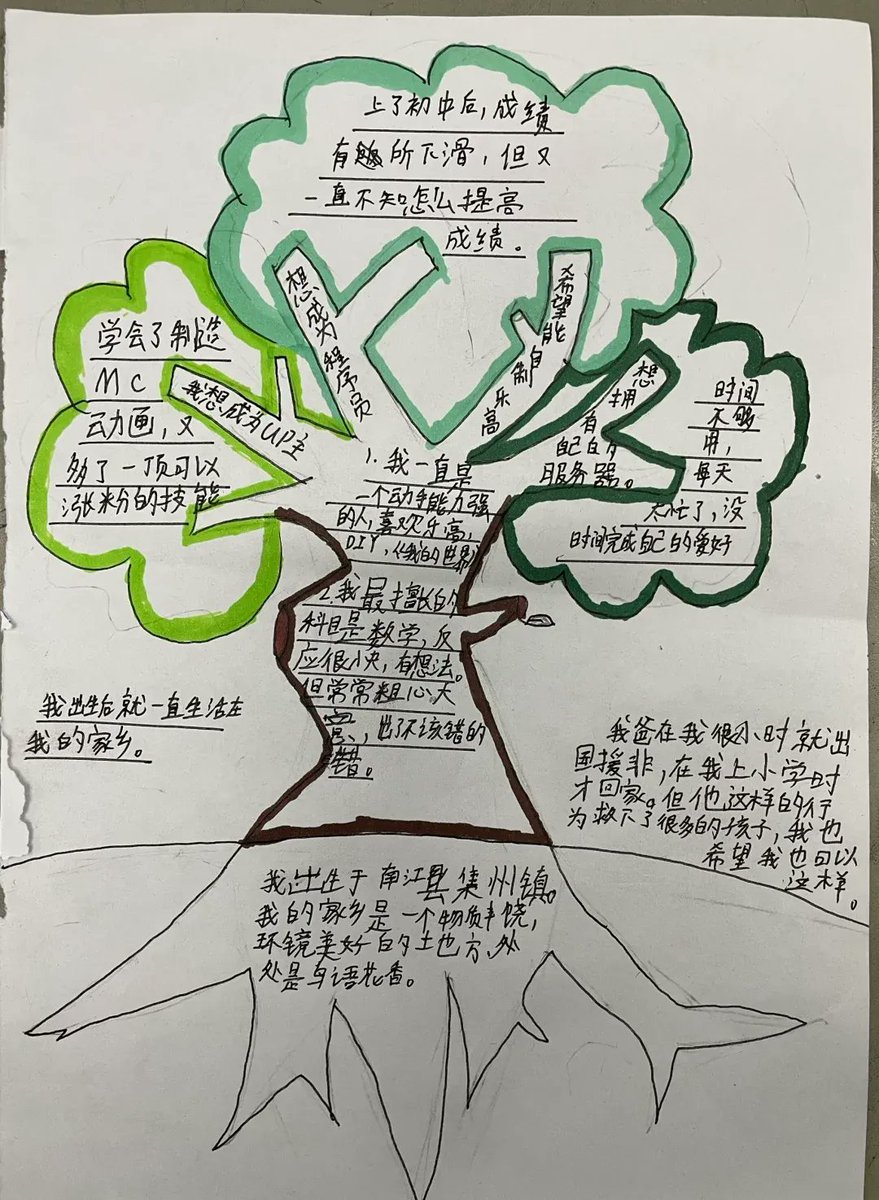 上了初中后，成绩
有所下滑，但又
一直不知怎么提高
成绩。
想成为程序员
希望能自制乐高
学会了制造
MC
动画，又
多了一项可以
涨粉的技能
我想成为UP主
想拥有自己的服务器。
时间
不够
用，
每天
太忙了，没
时间完成自己的爱好
1.我一直是
一个动手能力强
的人，喜欢乐高，
DIY，《我的世界》
2.我最擅长的
科目是数学，反
应很快，有想法。
但常常粗心大
意，出了不该错的
错。
我出生后就一直生活在
我的家乡。
我爸在我很小时就出
国援非，在我上小学时
才回家。但他这样的行
为救下了很多的孩子，我也
希望我也可以
这样。
我出生于南江县集州镇。
我的家乡是一个物质丰饶，
环镜美好的土地方，处
处是鸟语花香。